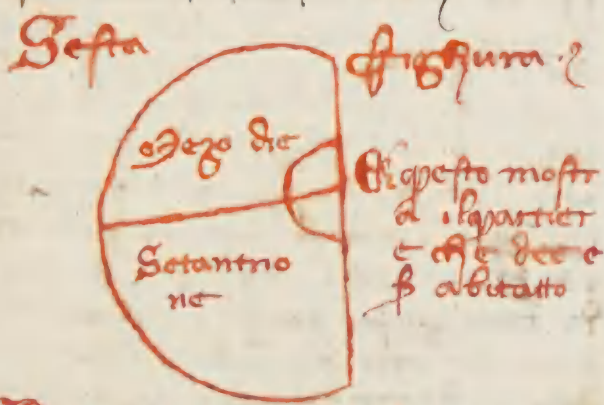 Sesta fighura
Mezo die
Setantrio
ne
E questo mostr
a il quartier
e che dee e
ß abitatto